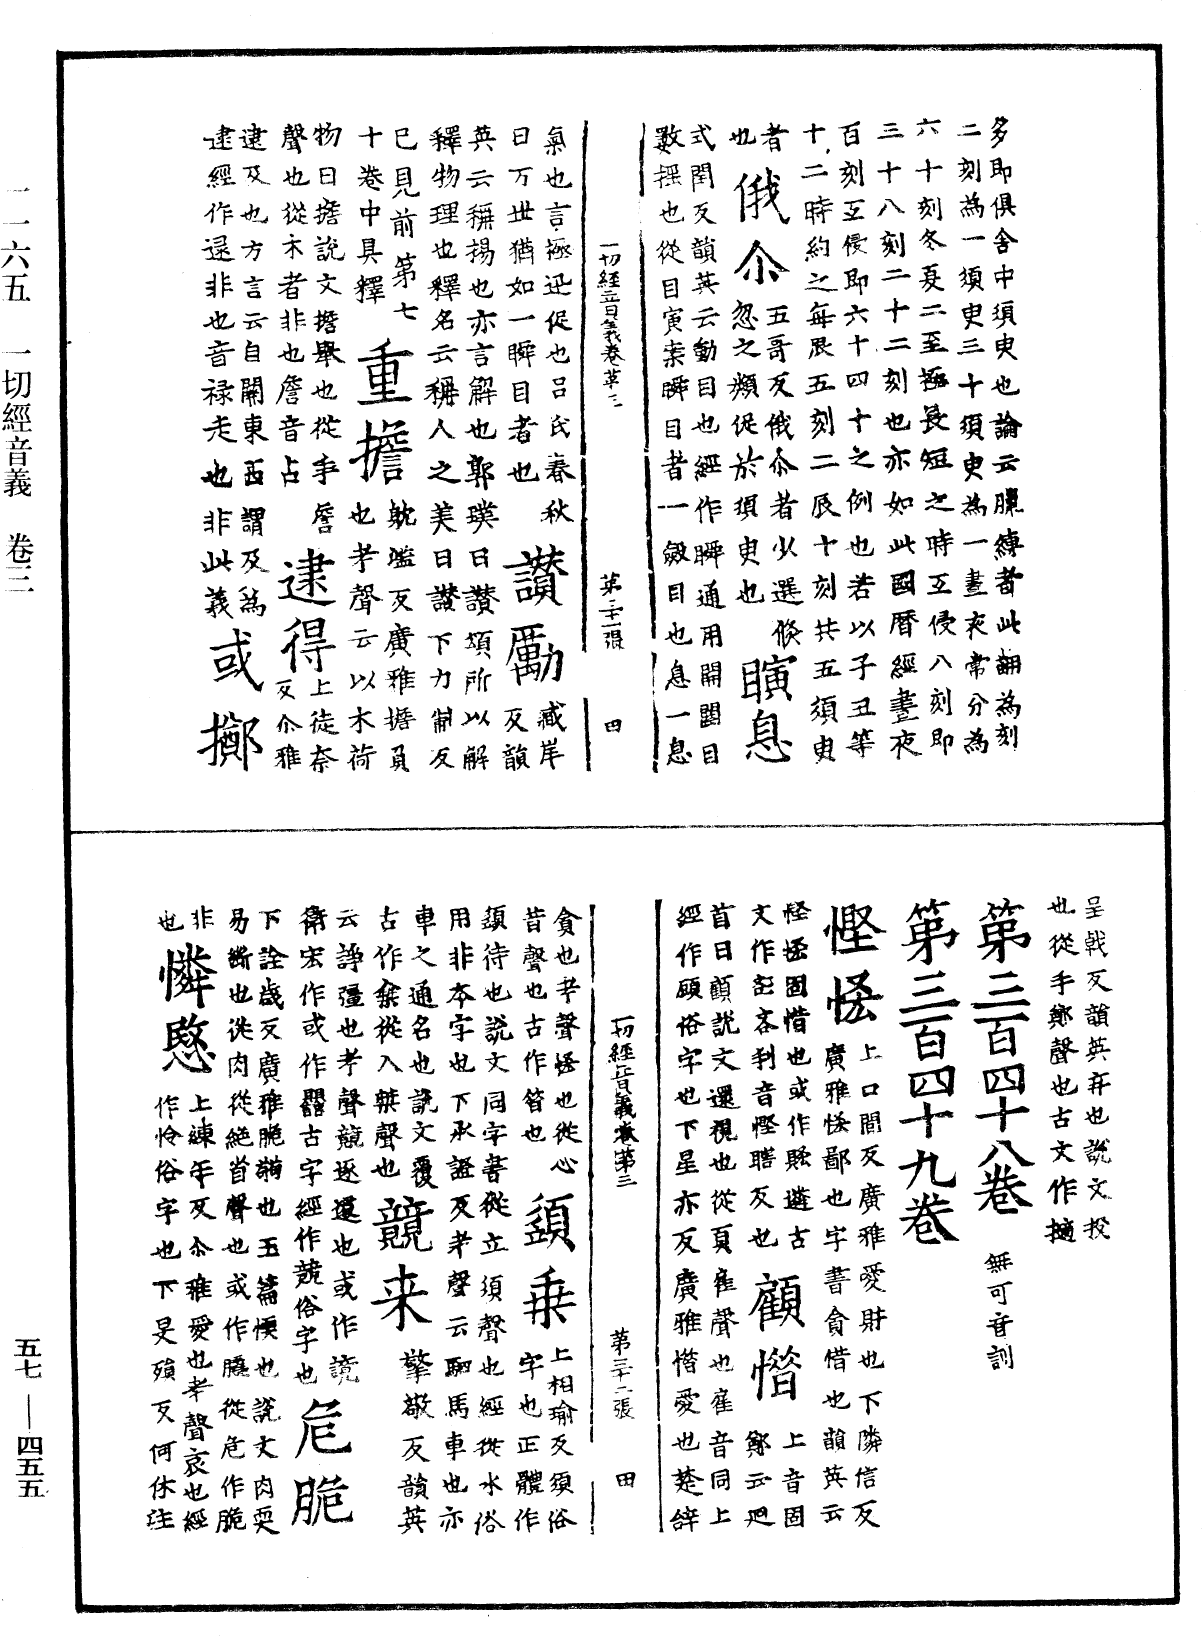 多即俱舍中須臾也論云臘縛者此翻為刻
二刻為一須臾三十須臾為一晝夜常分為
六十刻冬夏二至極長短之時互侵八刻即
三十八刻二十二刻也亦如此國曆經晝夜
百刻互侵即六十四十之例也若以子丑等
十二時約之每辰五刻二辰十刻共五須臾
者
也
俄尒
五哥反俄尒者少選倏
忽之頃促於須臾也
瞚息
式閏反韻英云動目也經作瞬通用開闔目
數揺也從目寅聲瞬目者一斂目也息一息
一切經音義卷第三 第三十一張 四
氣也言極迅促也吕氏春秋
曰万世猶如一瞬目者也
讚勵
臧岸
反韻
英云稱揚也亦言解也郭璞曰讚頌所以解
釋物理也釋名云稱人之美曰讃下力制反
已見前第七
十卷中具釋
重擔
躭濫反廣雅擔負
也考聲云以木荷
物曰擔說文擔舉也從手詹
聲也從木者非也詹音占
逮得
上徒奈
反尒雅
逮及也方言云自關東西謂及為
逮經作逯非也音禄走也非此義
或擲
呈戟反韻英弃也說文投
也從手鄭聲也古文作擿
第三百四十八卷 無可音訓
第三百四十九卷
慳恡
上口間反廣雅愛財也下隣信反
廣雅恡鄙也字書貪惜也韻英云
恡極固惜也或作䝼遴古
文作㖁吝利音慳瞎反也
顧惜
上音固
鄭云迴
首曰顧說文還視也從頁雇聲也雇音同上
經作頋俗字也下星亦反廣雅惜愛也楚辞
一切經音義卷第三 第三十二張 田
貪也考聲恡也從心
昔聲也古作㫺也
須乗
上相瑜反須俗
字也正體作
䇓待也說文同字書從立須聲也經從水俗
用非本字也下承證反考聲云駟馬車也亦
車之通名也說文覆
古作椉從入桀聲也
競来
擎敬反韻英
云諍彊也考聲競逐遽也或作誩
衛宏作或作䛒古字經作競俗字也
危脆
下詮歲反廣雅脆弱也玉篇愞也說文肉耎
易斷也從肉從絶首聲也或作膬從危作脆
非
也
憐愍
上練年反尒雅愛也考聲哀也經
作怜俗字也下旻殞反何休注
一一六五 一切經音義 卷三
五七—四五五